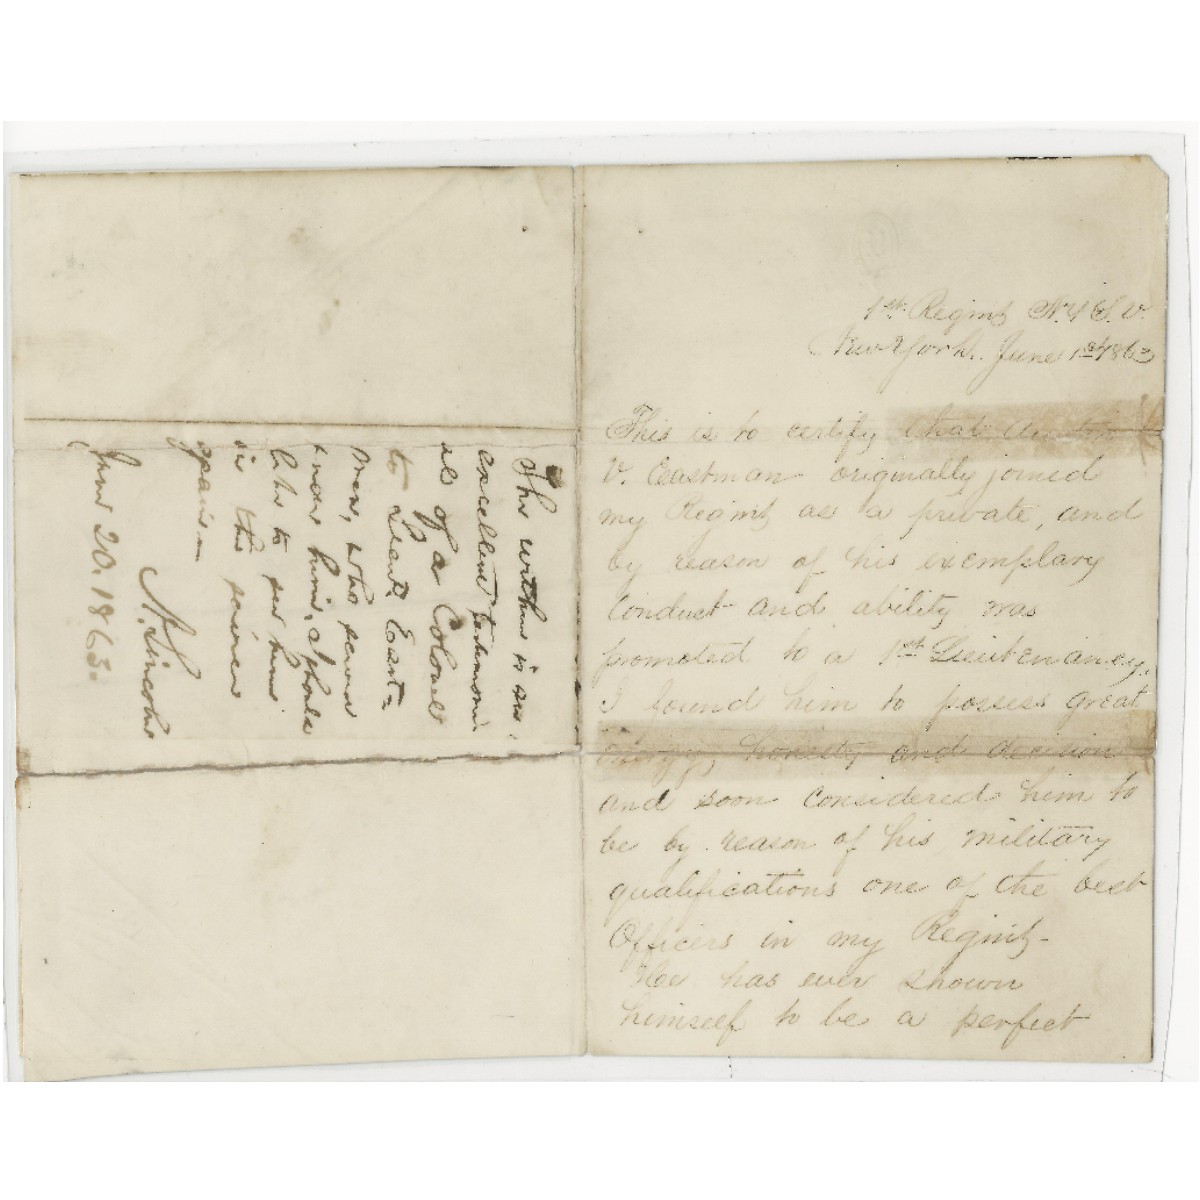 1st Regmt N.Y.S.V.
New York. June 1st 1863
This is to certify that Austin
V. Eastman originally joined
my Regmt as a private, and
by reason of his exemplary
conduct and ability was
promoted to a 1st Lieutenancy.
I found him to possess great
energy, honesty and decision
and soon considered him to
be by reason of his military
qualifications one of the best
Officers in my Regmt-
He has ever shown
himself to be a perfect
The within is an
excellent testimoni-
al of a Colonel
to Lieut. East-
man, who served
under him, & whole
wishes to see him
in the service
again—
A. Lincoln
June 20. 1863.